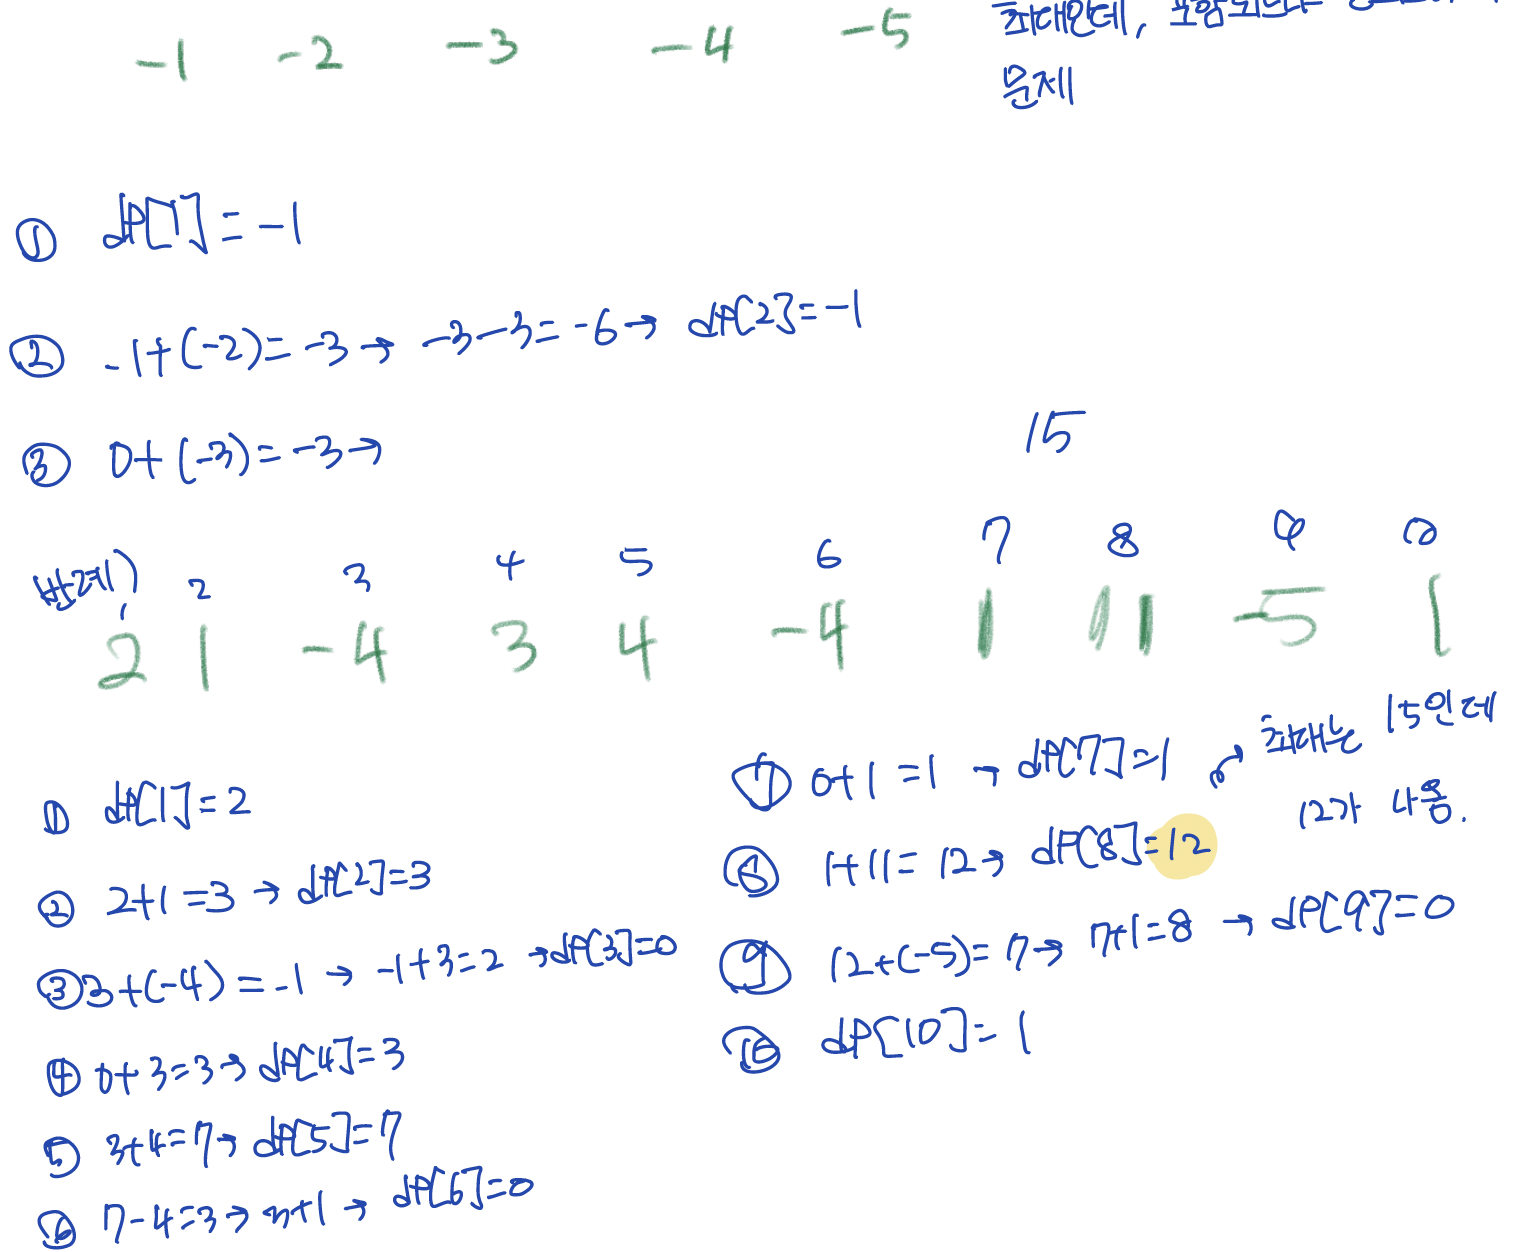 -1 -2 -3 -4 -5
최대인데, 포함되는
문제
① dP[1] = -1
② -1+(-2)= -3 → -3-3= -6 → dP[2]= -1
③ 0+(-3)= -3 →
15
반례)
1 2 3 4 5 6 7 8 9 10
2 1 -4 3 4 -4 1 11 -5 1
① dP[1]=2
② 2+1=3 → dP[2]=3
③ 3+(-4)=-1 → -1+3=2 → dP[3]=0
④ 0+3=3 → dP[4]=3
⑤ 3+4=7 → dP[5]=7
⑥ 7-4=3 → 3+1 → dP[6]=0
⑦ 0+1=1 → dP[7]=1
⑧ 1+11=12 → dP[8]=12
최대는 15인데
12가 나옴.
⑨ 12+(-5)=7 → 7+1=8 → dP[9]=0
⑩ dP[10]=1